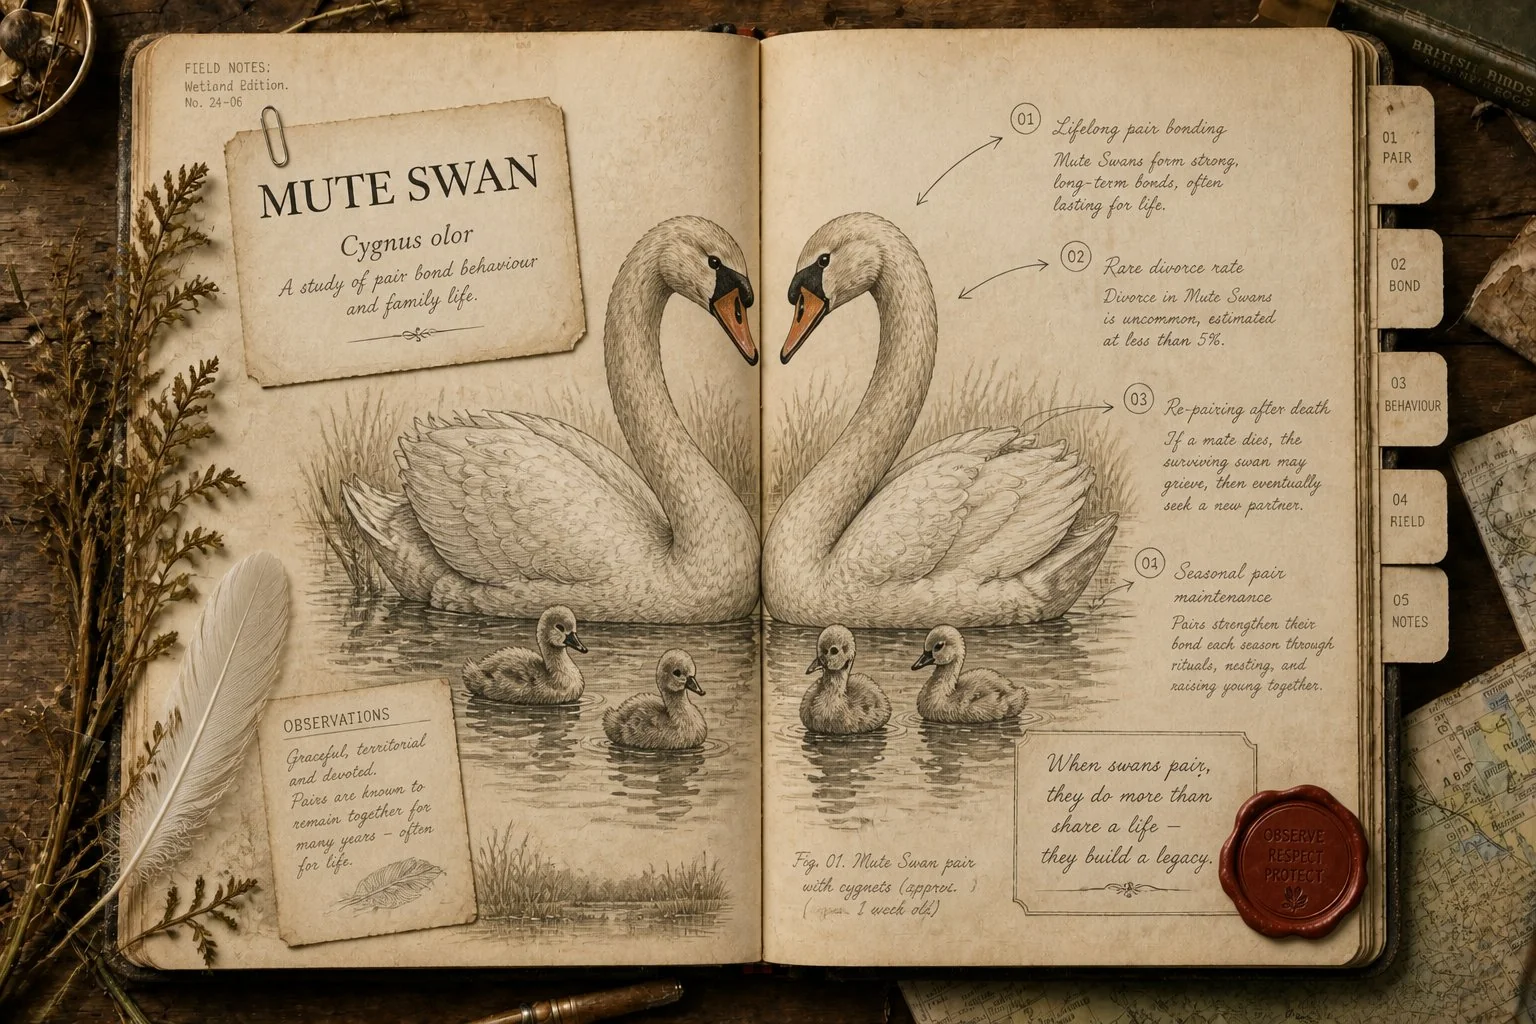 FIELD NOTES:
Wetland Edition.
No. 24-06
MUTE SWAN
Cygnus olor
A study of pair bond behaviour
and family life.
OBSERVATIONS
Graceful, territorial
and devoted.
Pairs are known to
remain together for
many years – often
for life.
01
Lifelong pair bonding
Mute Swans form strong,
long-term bonds, often
lasting for life.
02
Rare divorce rate
Divorce in Mute Swans
is uncommon, estimated
at less than 5%.
03
Re-pairing after death
If a mate dies, the
surviving swan may
grieve, then eventually
seek a new partner.
Seasonal pair
maintenance
Pairs strengthen their
bond each season through
rituals, nesting, and
raising young together.
Fig. 01. Mute Swan pair
with cygnets (approx.
1 week old)
When swans pair,
they do more than
share a life –
they build a legacy.
OBSERVE
RESPECT
PROTECT
01
PAIR
02
BOND
03
BEHAVIOUR
04
RIELD
05
NOTES
BRITISH BIRDS